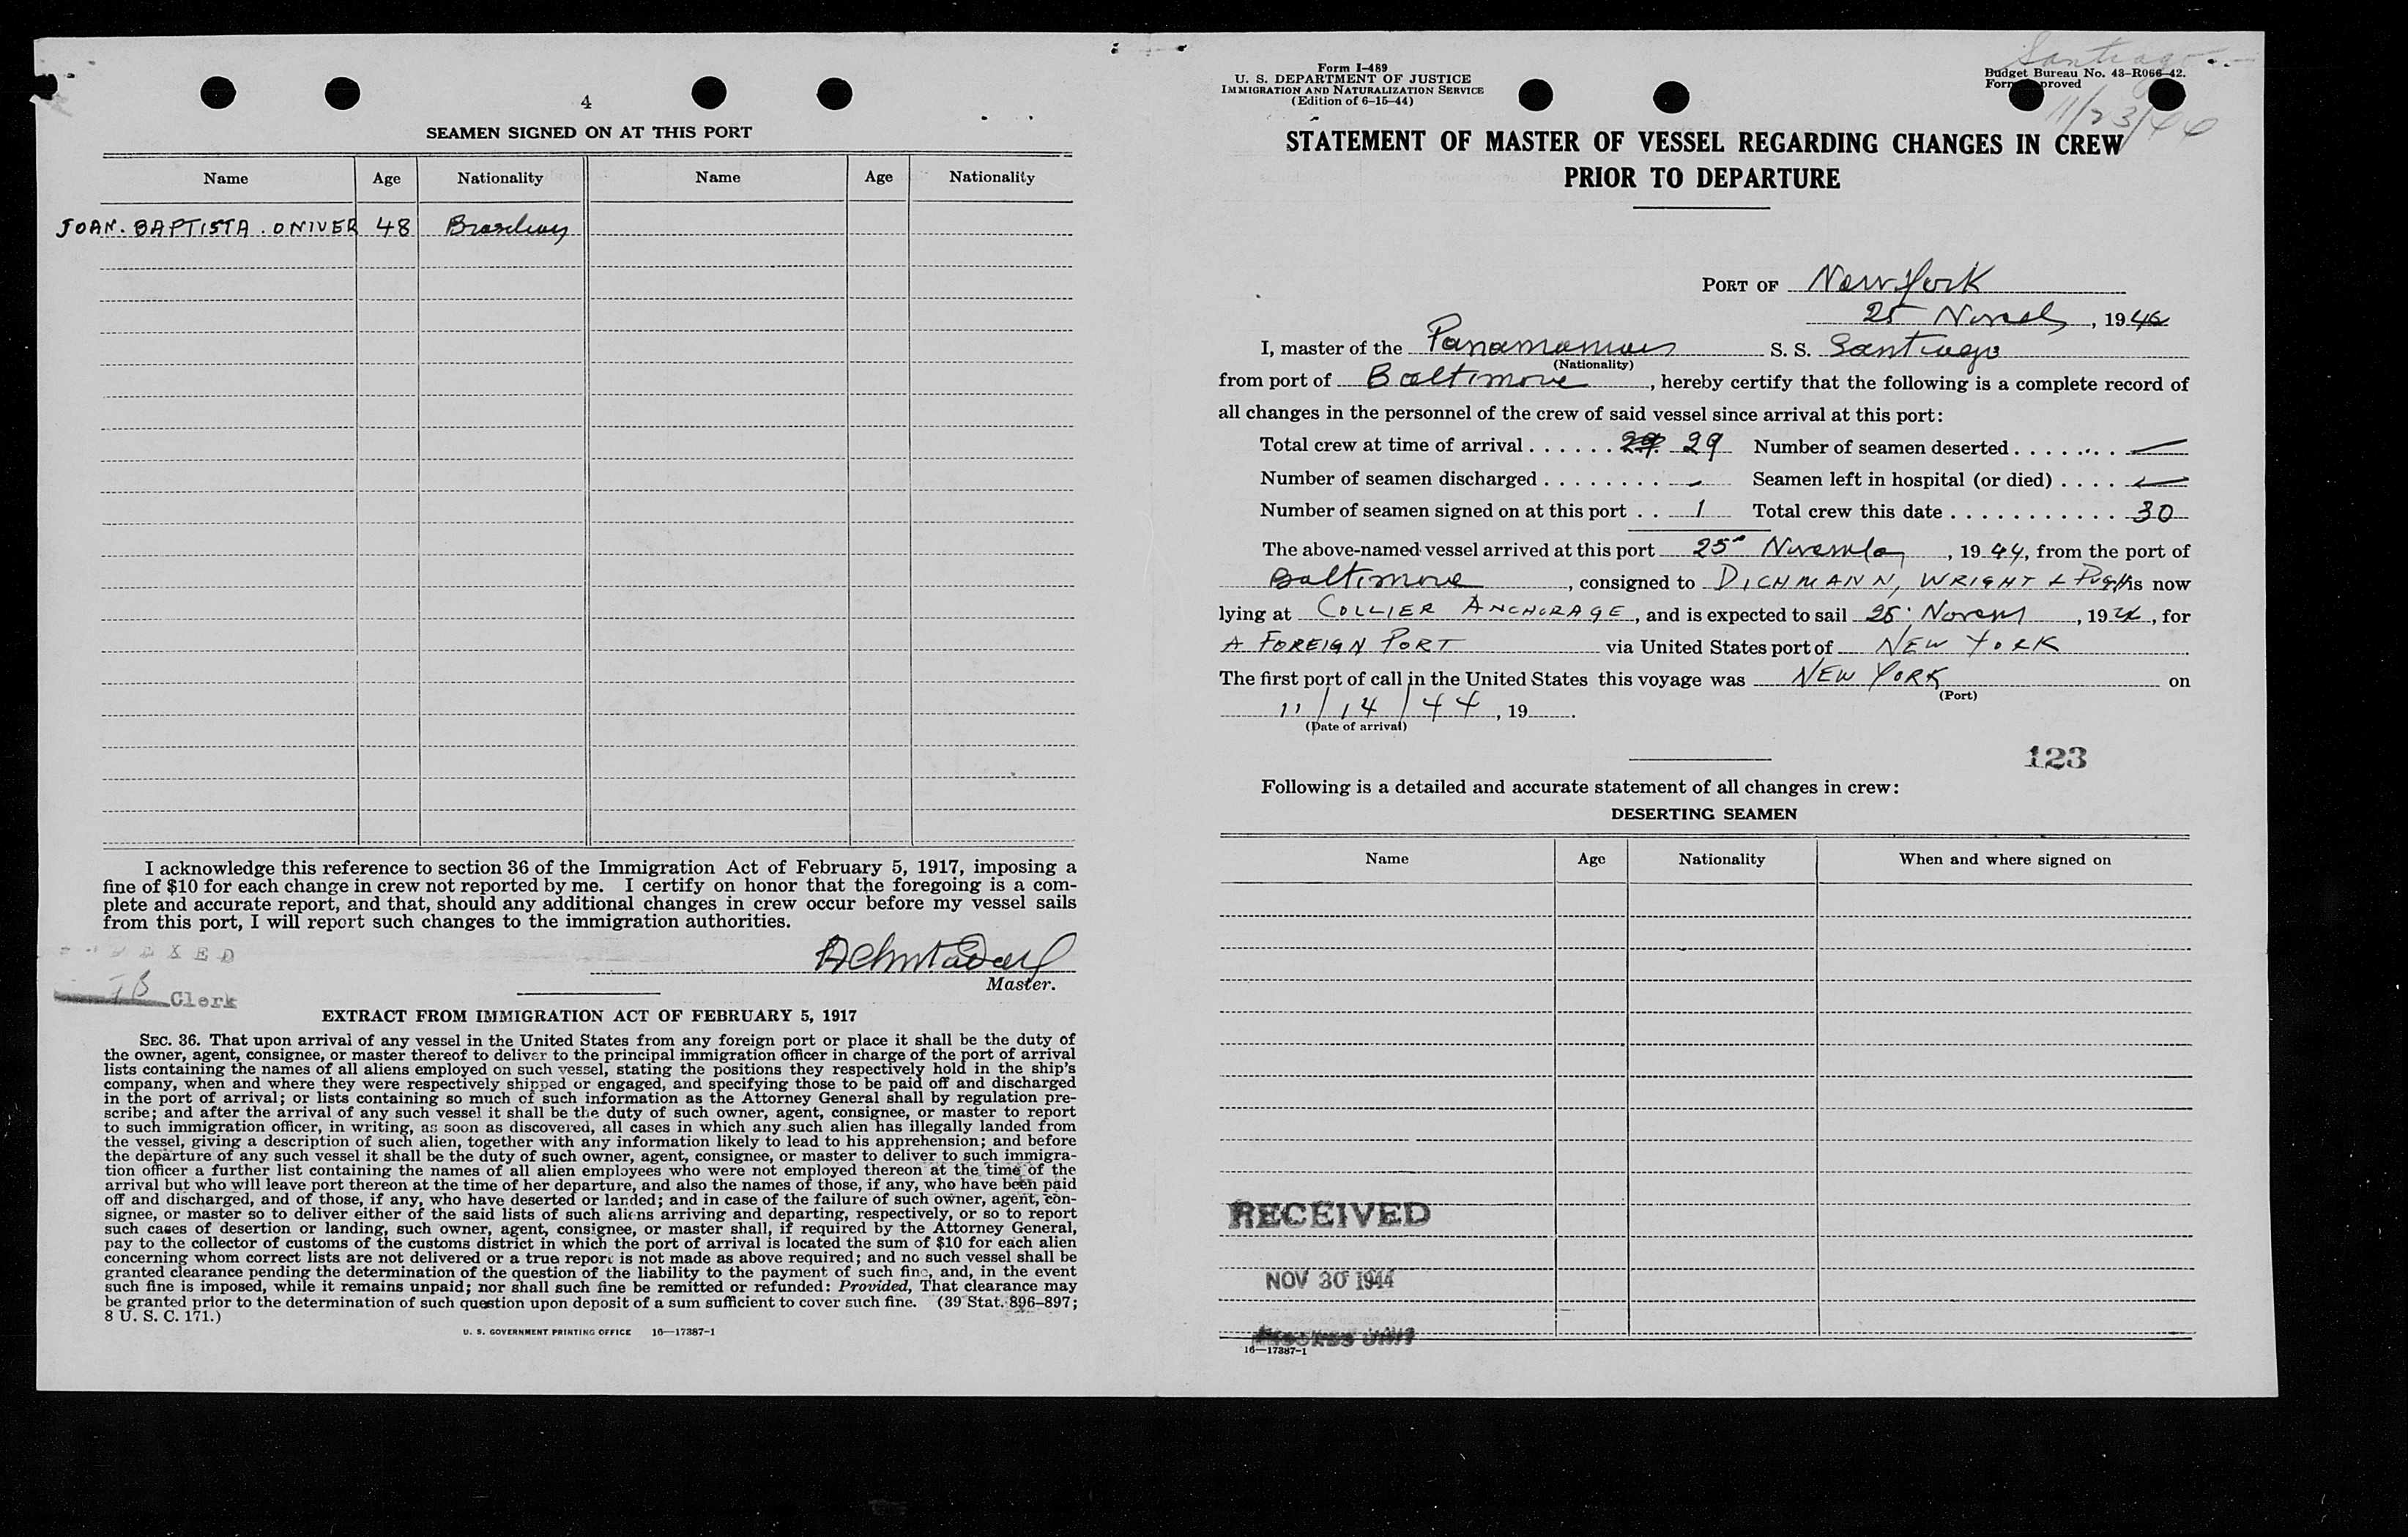 4
SEAMEN SIGNED ON AT THIS PORT
Name Age Nationality Name Age Nationality
JOAN. BAPTISTA. ONIVER 48
I acknowledge this reference to section 36 of the Immigration Act of February 5, 1917, imposing a
fine of $10 for each change in crew not reported by me. I certify on honor that the foregoing is a com-
plete and accurate report, and that, should any additional changes in crew occur before my vessel sails
from this port, I will report such changes to the immigration authorities.
Master.
Clerk
EXTRACT FROM IMMIGRATION ACT OF FEBRUARY 5, 1917
SEC. 36. That upon arrival of any vessel in the United States from any foreign port or place it shall be the duty of
the owner, agent, consignee, or master thereof to deliver to the principal immigration officer in charge of the port of arrival
lists containing the names of all aliens employed on such vessel, stating the positions they respectively hold in the ship's
company, when and where they were respectively shipped or engaged, and specifying those to be paid off and discharged
in the port of arrival; or lists containing so much of such information as the Attorney General shall by regulation pre-
scribe; and after the arrival of any such vessel it shall be the duty of such owner, agent, consignee, or master to report
to such immigration officer, in writing, as soon as discovered, all cases in which any such alien has illegally landed from
the vessel, giving a description of such alien, together with any information likely to lead to his apprehension; and before
the departure of any such vessel it shall be the duty of such owner, agent, consignee, or master to deliver to such immigra-
tion officer a further list containing the names of all alien employees who were not employed thereon at the time of the
arrival but who will leave port thereon at the time of her departure, and also the names of those, if any, who have been paid
off and discharged, and of those, if any, who have deserted or landed; and in case of the failure of such owner, agent, con-
signee, or master so to deliver either of the said lists of such aliens arriving and departing, respectively, or so to report
such cases of desertion or landing, such owner, agent, consignee, or master shall, if required by the Attorney General,
pay to the collector of customs of the customs district in which the port of arrival is located the sum of $10 for each alien
concerning whom correct lists are not delivered or a true report is not made as above required; and no such vessel shall be
granted clearance pending the determination of the question of the liability to the payment of such fine, and, in the event
such fine is imposed, while it remains unpaid; nor shall such fine be remitted or refunded: Provided, That clearance may
be granted prior to the determination of such question upon deposit of a sum sufficient to cover such fine. (39 Stat. 896–897;
8 U. S. C. 171.)
U. S. GOVERNMENT PRINTING OFFICE 16—17387-1
Santiago
11/23/44
Form I-489
U. S. DEPARTMENT OF JUSTICE
IMMIGRATION AND NATURALIZATION SERVICE
(Edition of 6-15-44)
Budget Bureau No. 43-R066-42.
STATEMENT OF MASTER OF VESSEL REGARDING CHANGES IN CREW
PRIOR TO DEPARTURE
PORT OF New York
25 , 1944
I, master of the S. S. Santiago
(Nationality)
from port of Baltimore, hereby certify that the following is a complete record of
all changes in the personnel of the crew of said vessel since arrival at this port:
Total crew at time of arrival . . . . . . 29 Number of seamen deserted . . . . . . . . —
Number of seamen discharged . . . . . . . . - Seamen left in hospital (or died) . . . . —
Number of seamen signed on at this port . . 1 Total crew this date . . . . . . . . . . . . 30
The above-named vessel arrived at this port 25 , 1944, from the port of
Baltimore, consigned to DICHMANN, WRIGHT & PUGH is now
lying at COLLIER ANCHORAGE, and is expected to sail 25 , 19 , for
A FOREIGN PORT via United States port of NEW YORK
The first port of call in the United States this voyage was NEW YORK on
(Port)
11/14/44, 19
(Date of arrival)
123
Following is a detailed and accurate statement of all changes in crew:
DESERTING SEAMEN
Name Age Nationality When and where signed on
RECEIVED
NOV 30 1944
16—17387-1